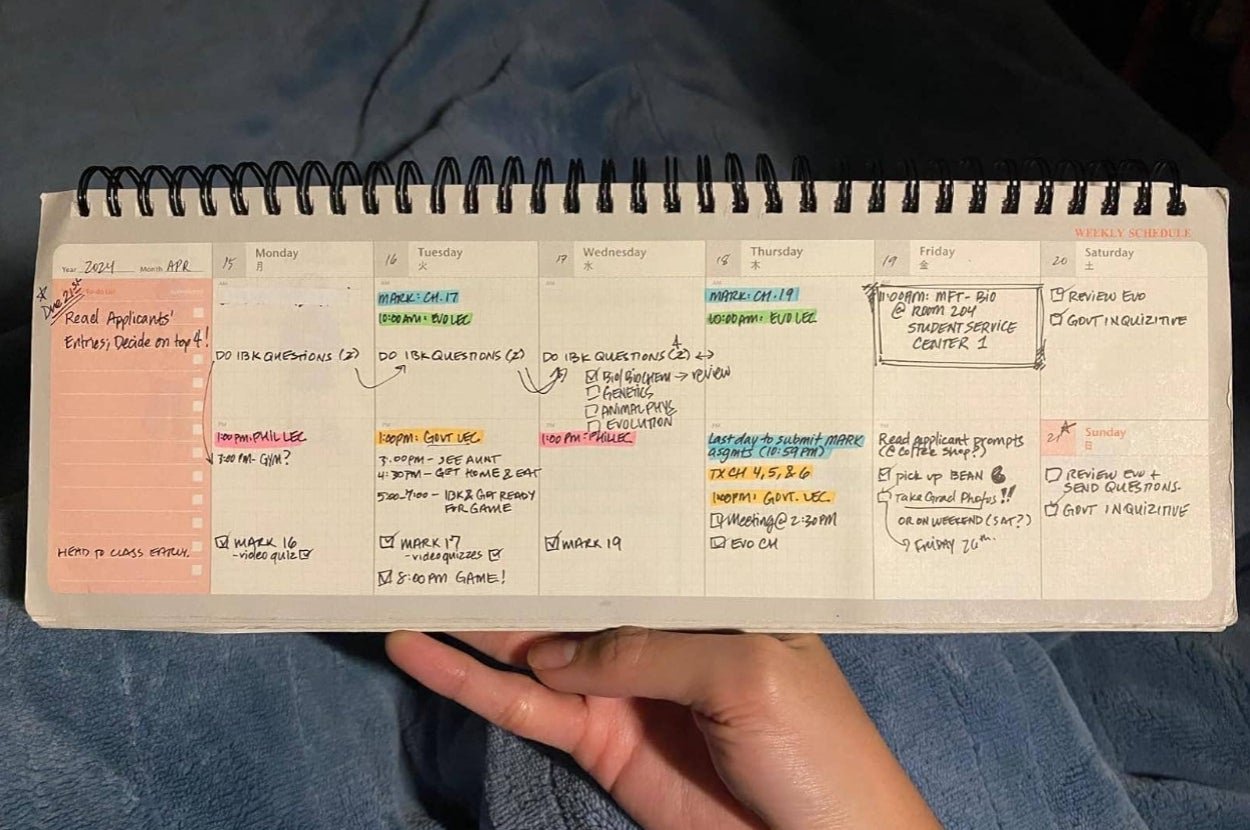 WEEKLY SCHEDULE
Year 2024 Month APR
* Due 21st
To-do List
Read Applicants'
Entries; Decide on top 4!
HEAD TO CLASS EARLY.
15 Monday
月
AM
DO IBK QUESTIONS (2)
PM
1:00 PM: PHIL LEC
3:00 PM- GYM?
MARK 16
-video quiz
16 Tuesday
火
AM
MARK: CH. 17
10:00 AM: EVO LEC
DO IBK QUESTIONS (2)
PM
1:00PM: GOVT LEC
3:00PM- SEE AUNT
4:30PM- GET HOME & EAT
5:00-7:00 - IBK & GET READY
FOR GAME
MARK 17
-video quizzes
8:00 PM GAME!
17 Wednesday
水
AM
4
DO IBK QUESTIONS (2) ↔
BIO/BIOCHEM → review
GENETICS
ANIMAL PHYS
EVOLUTION
PM
1:00 PM: PHIL LEC
MARK 19
18 Thursday
木
AM
MARK: CH. 19
10:00AM: EVO LEC
PM
Last day to submit MARK
asgmts (10:59 PM)
TX CH 4, 5, & 6
1:00PM: GOVT. LEC
Meeting @ 2:30PM
EVO CH
19 Friday
金
11:00AM: MFT- BIO
@ ROOM 204
STUDENT SERVICE
CENTER 1
PM
Read applicant prompts
(@ coffee shop?)
pick up BEAN
Take Grad Photos!!
OR ON WEEKEND (SAT?)
→ FRIDAY 26th.
20 Saturday
土
REVIEW EVO
GOVT INQUIZITIVE
21 Sunday
日
REVIEW EVO +
SEND QUESTIONS.
GOVT INQUIZITIVE